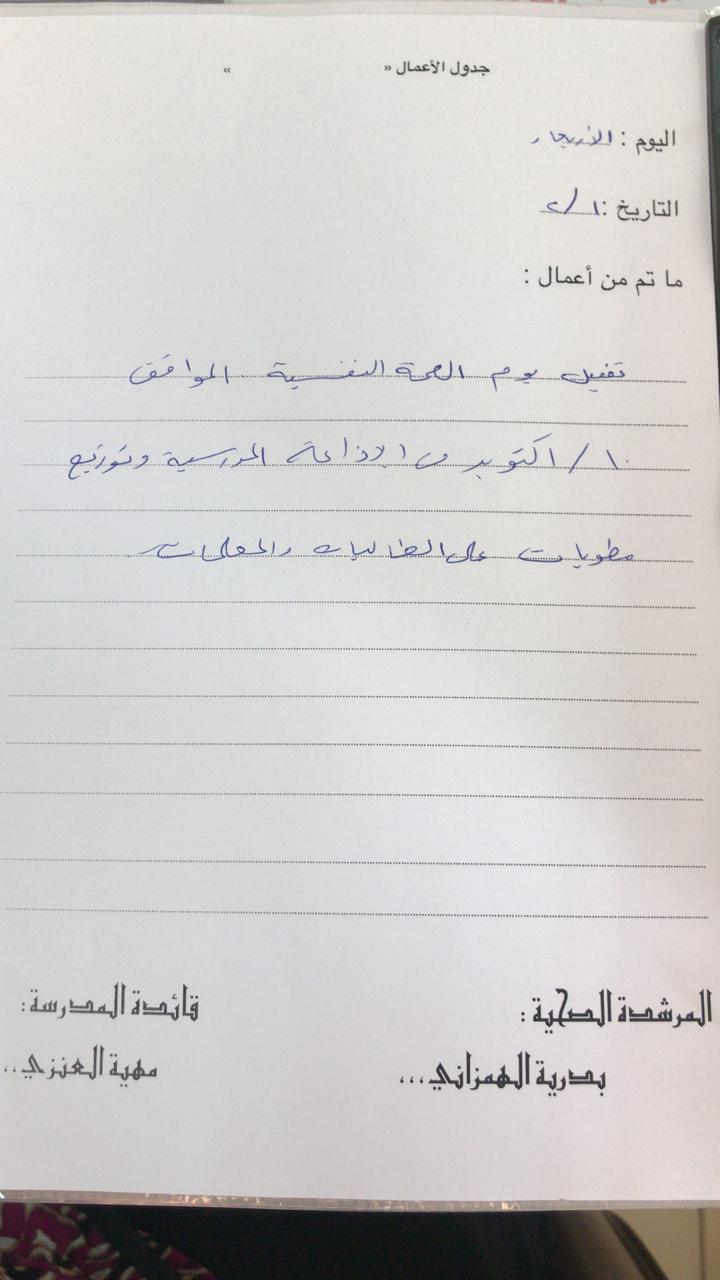 جدول الأعمال « »
اليوم : الأربعاء
التاريخ : ١ / ٢
ما تم من أعمال :
تفعيل يوم الصحة النفسية الموافق
١٠ / اكتوبر من الاذاعة المدرسية وتوزيع
مطويات على الطالبات والمعلمات
المرشدة الصحية :
قائدة المدرسة :
بدرية الهمزاني ...
مهية العنزي ..